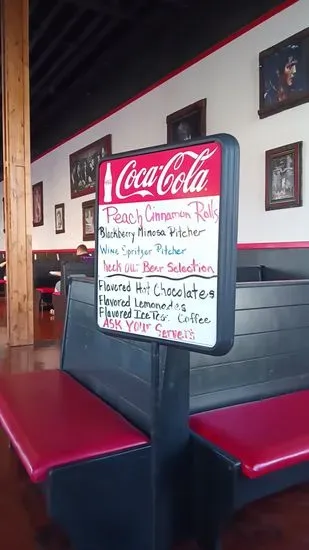 Coca-Cola
Peach Cinnamon Rolls
Blackberry Mimosa Pitcher
Wine Spritzer Pitcher
heck out Beer Selection
Flavored Hot Chocolates
Flavored Lemonades
Flavored Ice Tea, Coffee
ASK YOUr Servers